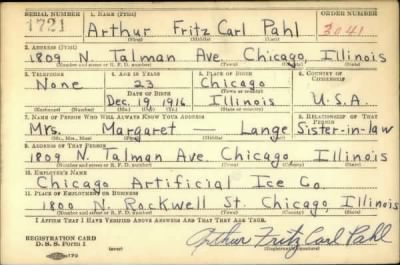 SERIAL NUMBER 1. NAME (PRINT) ORDER NUMBER
1721 Arthur Fritz Carl Pahl 3041
(First) (Middle) (Last)
2. ADDRESS (PRINT)
1809 N. Talman Ave. Chicago, Illinois
(Number and street or R. F. D. number) (Town) (County) (State)
3. TELEPHONE 4. AGE IN YEARS 5. PLACE OF BIRTH 6. COUNTRY OF CITIZENSHIP
None 23 Chicago
DATE OF BIRTH (Town or county)
Dec. 19, 1916 Illinois U.S.A.
(Exchange) (Number) (Mo.) (Day) (Yr.) (State or country)
7. NAME OF PERSON WHO WILL ALWAYS KNOW YOUR ADDRESS 8. RELATIONSHIP OF THAT PERSON
Mrs. Margaret — Lange Sister-in-law
(Mr., Mrs., Miss) (First) (Middle) (Last)
9. ADDRESS OF THAT PERSON
1809 N. Talman Ave. Chicago, Illinois
(Number and street or R. F. D. number) (Town) (County) (State)
10. EMPLOYER'S NAME
Chicago Artificial Ice Co.
11. PLACE OF EMPLOYMENT OR BUSINESS
1800 N. Rockwell St. Chicago, Illinois
(Number and street or R. F. D. number) (Town) (County) (State)
I AFFIRM THAT I HAVE VERIFIED ABOVE ANSWERS AND THAT THEY ARE TRUE.
REGISTRATION CARD
D. S. S. Form 1 Arthur Fritz Carl Pahl
(over) (Registrant's signature)